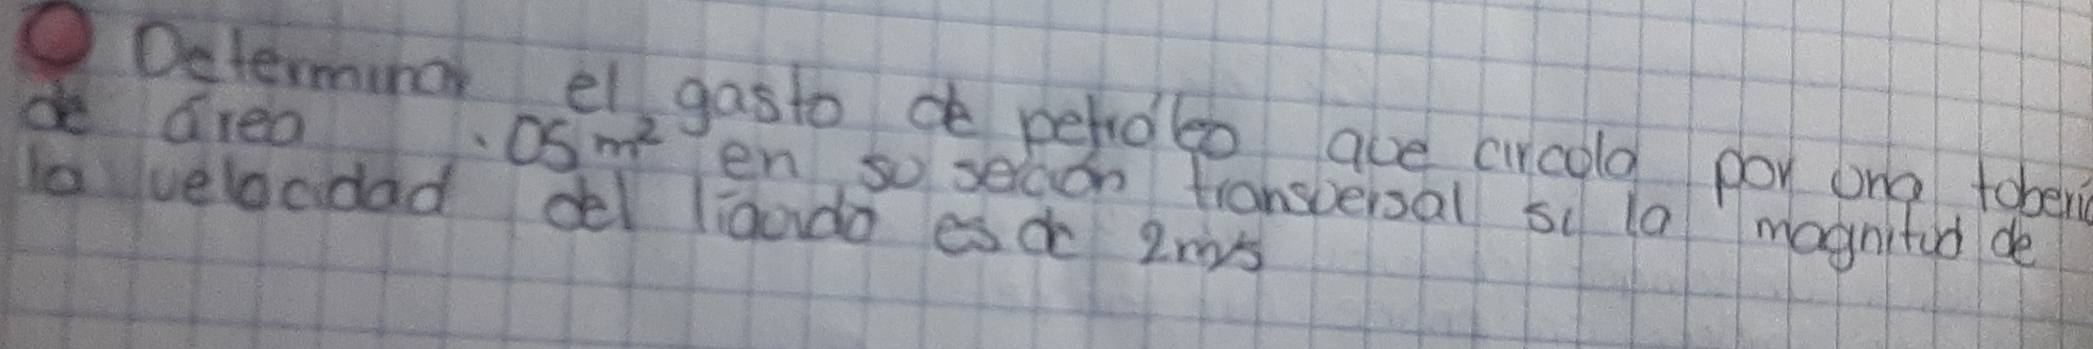 Determinar el gasto de petróleo que circula por una tuberí
de área .05 m² en su sección transversal si la magnitud de
la velocidad del líquido es de 2m/s